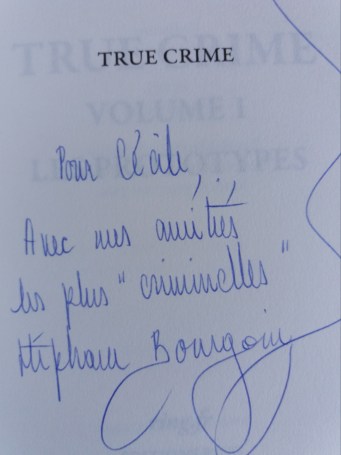 TRUE CRIME
TRUE CRIME
VOLUME I
Pour Cécile,
Avec mes amitiés
les plus "criminelles"
Stéphane Bourgoin